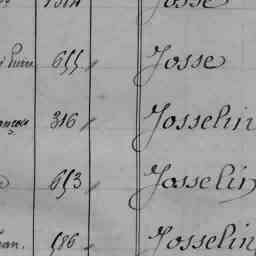 Josse
655 Josse
316 Josselin
653 Josselin
586 Josselin